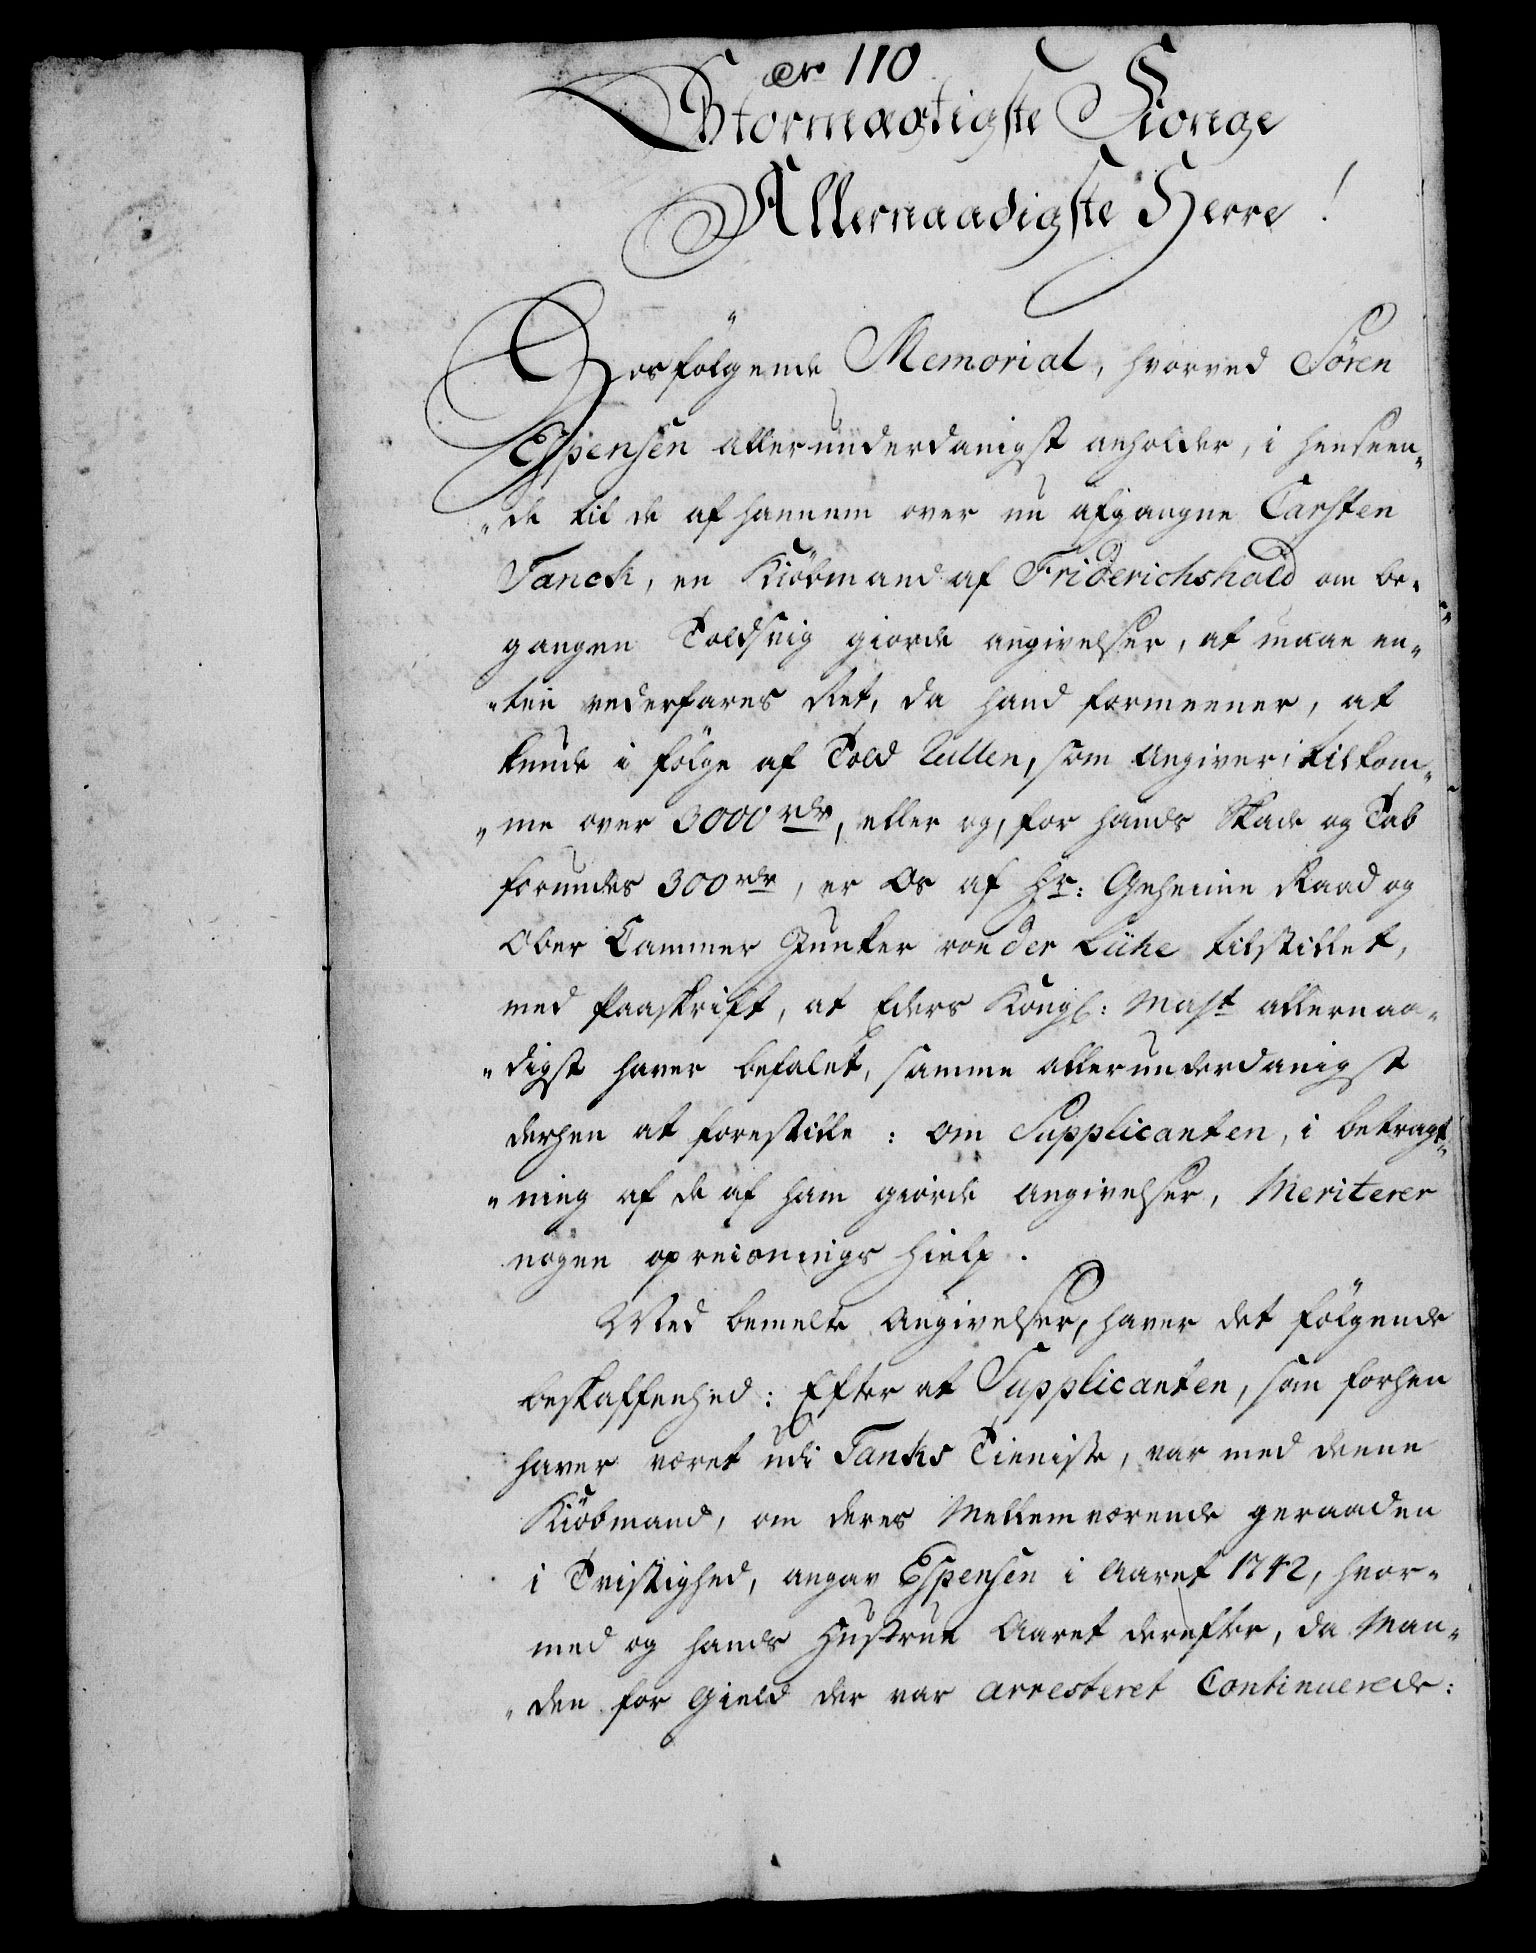 No 110
Stormægtigste Konge
Allernaadigste Herre!
Hosfølgende Memorial, hvorved Sören
Espensen allerunderdanigst anholder, i henseen„
„de til de af hannem over nu afgangne Carsten
Tanck, en Kiöbmand af Friderichshald om be„
gangen Toldsvig giorde angivelser, at maae en„
„ten vederfares Ret, da hand formeener, at
kunde i følge af Told Rullen, som Angiver, tilkom„
„me over 3000 rdr, eller og, for hands Skade og Tab
forundes 300 rdr, er Os af Hr: Geheime Raad og
Ober Cammer Junker von der Lühe tilstillet,
med Paaskrift, at Eders Kongl: Mayst allernaa„
„digst haver befalet, samme allerunderdanigst
derhen at forestille: om Supplicanten, i betragt„
„ning af de af ham giorde angivelser, Meriterer
nogen opreisnings hielp.
Med bemelte Angivelser, haver det følgende
beskaffenhed: Efter at Supplicanten, som forhen
haver været udi Tanks Tieniste, var med denne
Kiöbmand, om deres Mellemværende geraaden
i Tvistighed, angav Espensen i Aaret 1742, hvor„
med og hands Hustrue Aaret derefter, da Man„
„den for Gield der var arresteret Continuerede: